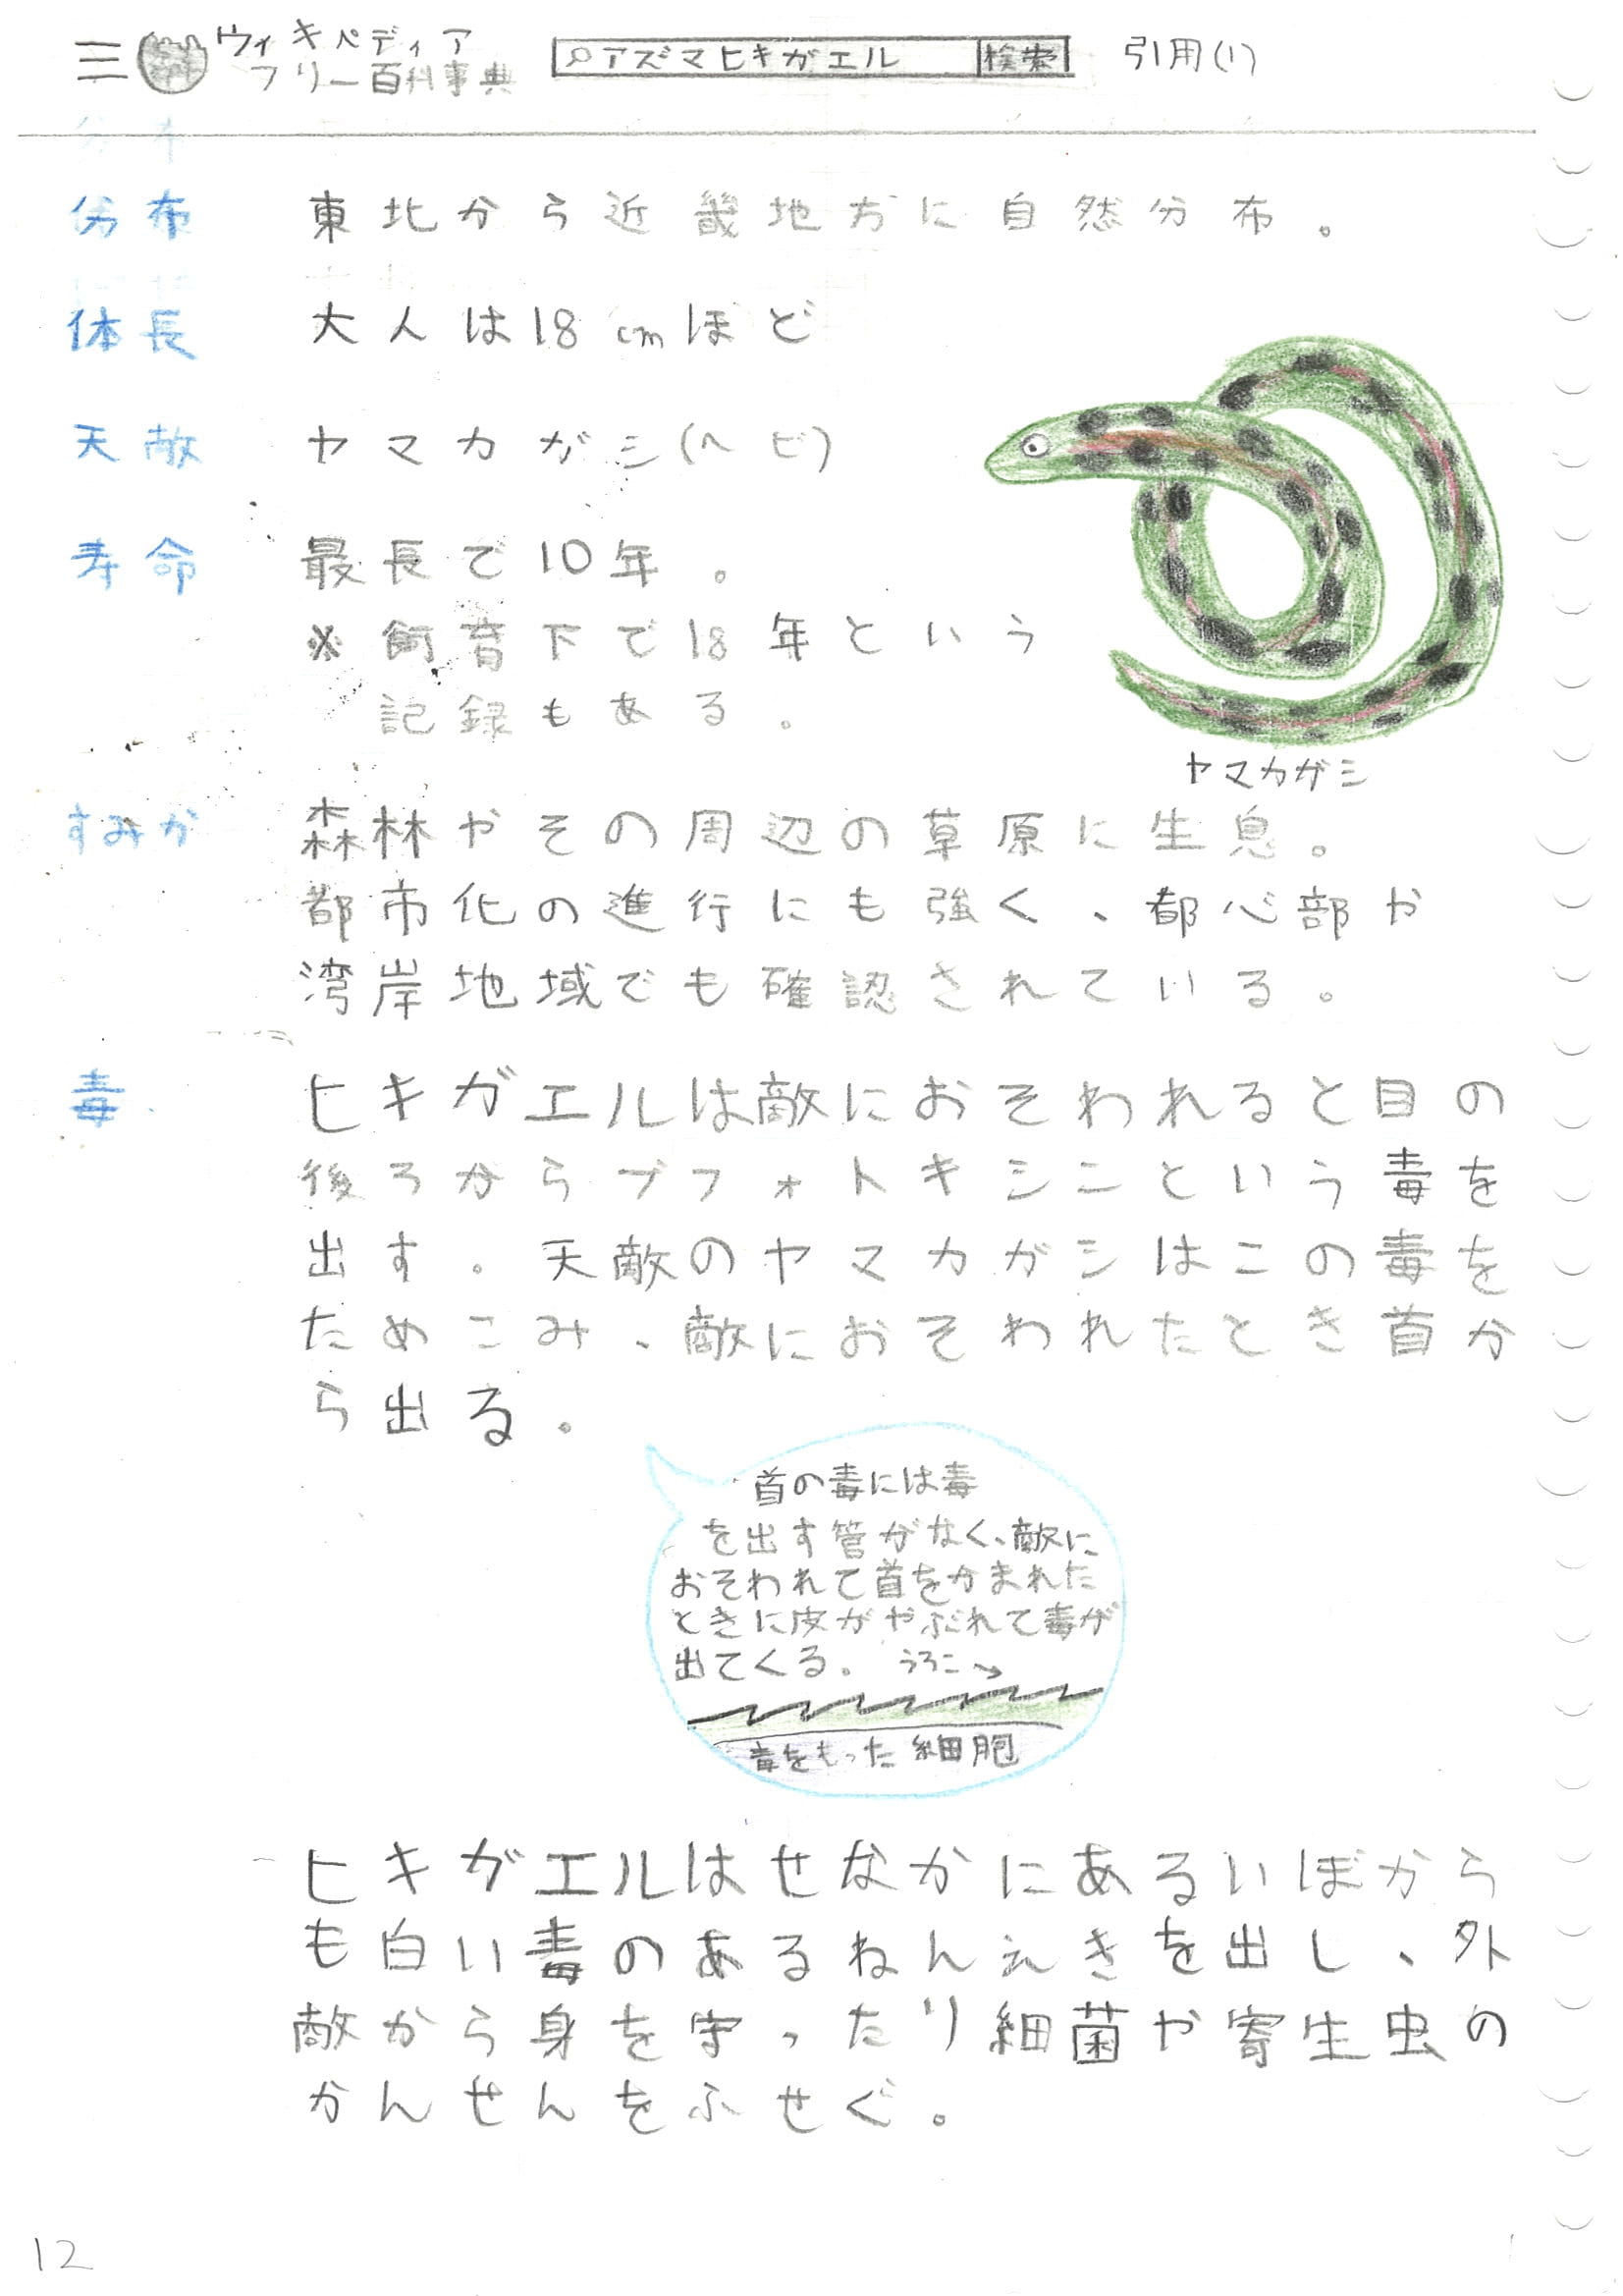 ウィキペディア
フリー百科事典
アズマヒキガエル 検索 引用(1)
分布 東北から近畿地方に自然分布。
体長 大人は18cmほど
天敵 ヤマカガシ(ヘビ)
寿命 最長で10年。
※飼育下で18年という
記録もある。
ヤマカガシ
すみか 森林やその周辺の草原に生息。
都市化の進行にも強く、都心部や
湾岸地域でも確認されている。
毒 ヒキガエルは敵におそわれると目の
後ろからブフォトキシンという毒を
出す。天敵のヤマカガシはこの毒を
ためこみ、敵におそわれたとき首か
ら出る。
首の毒には毒
を出す管がなく、敵に
おそわれて首をかまれた
ときに皮がやぶれて毒が
出てくる。 うろこ→
毒をもった細胞
ヒキガエルはせなかにあるいぼから
も白い毒のあるねんえきを出し、外
敵から身を守ったり細菌や寄生虫の
かんせんをふせぐ。
12